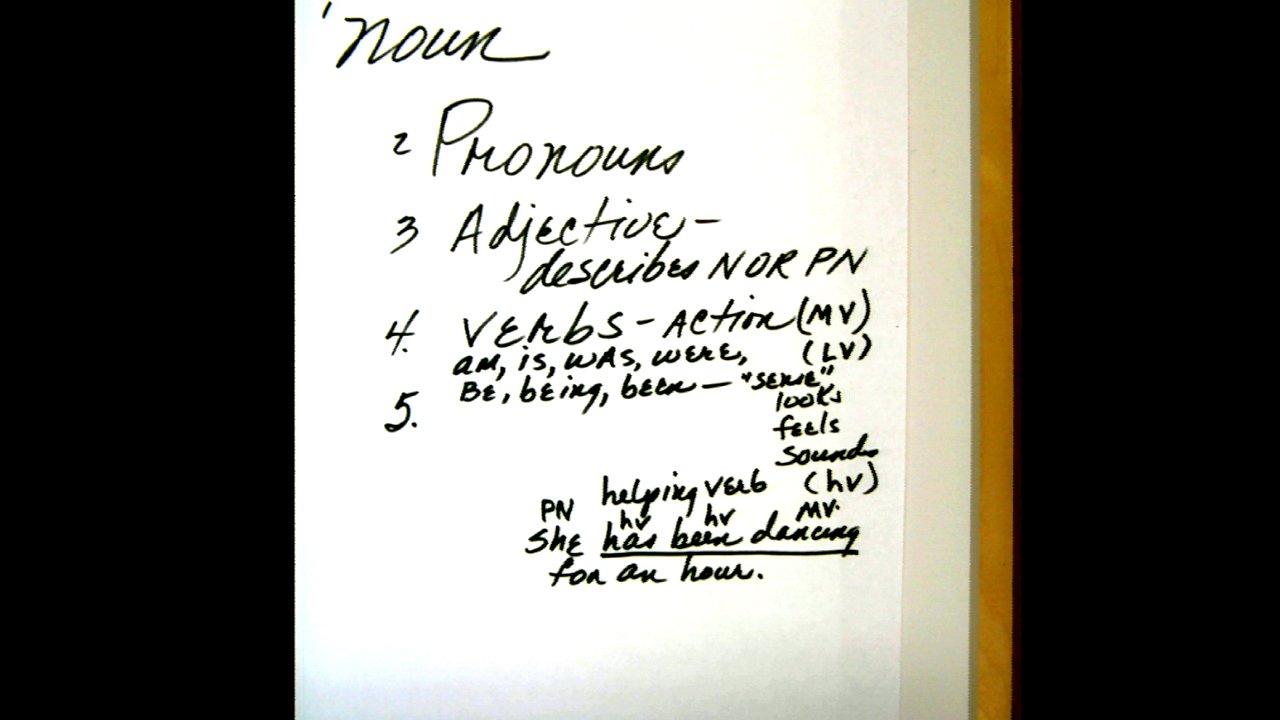 1 noun
2 Pronouns
3 Adjective-
describes N OR PN
4. VERBS - ACtion (MV)
am, is, was, were, (LV)
BE, being, been - "sense"
5. looks
feels
sounds
helping verb (hv)
PN hv hv MV.
She has been dancing
for an hour.